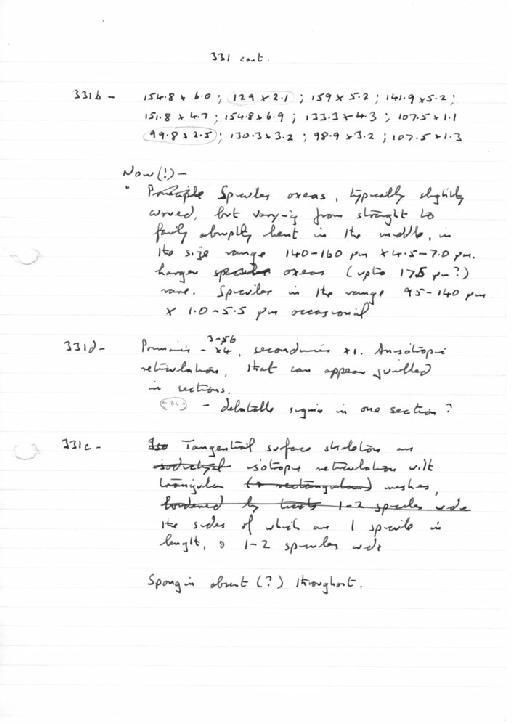 331 cont.
331b - 154.8 x 6.0 ; 129 x 2.1 ; 159 x 5.2 ; 141.9 x 5.2 ;
151.8 x 4.7 ; 154.8 x 6.9 ; 133.3 x 4.3 ; 107.5 x 1.1
99.8 x 2.5 ; 130.3 x 3.2 ; 98.9 x 3.2 ; 107.5 x 1.3
Now(!) -
" Spicules oxeas, typically slightly
curved, but varying from straight to
fairly abruptly bent in the middle, in
the size range 140-160 µm x 4.5-7.0 µm.
Larger oxeas (upto 175 µm?)
rare. Spicules in the range 95-140 µm
x 1.0-5.5 µm occasional
331d - Primaries - x4, secondaries x1. Anisotropic
reticulation, that can appear
in sections.
- debatable in one section?
331c - Tangential surface skeleton an
isotropic reticulation with
triangular (to rectangular) meshes,
bordered by 1-2 spicules wide
the sides of which are 1 spicule in
length, & 1-2 spicules wide
Spongin absent (?) throughout.